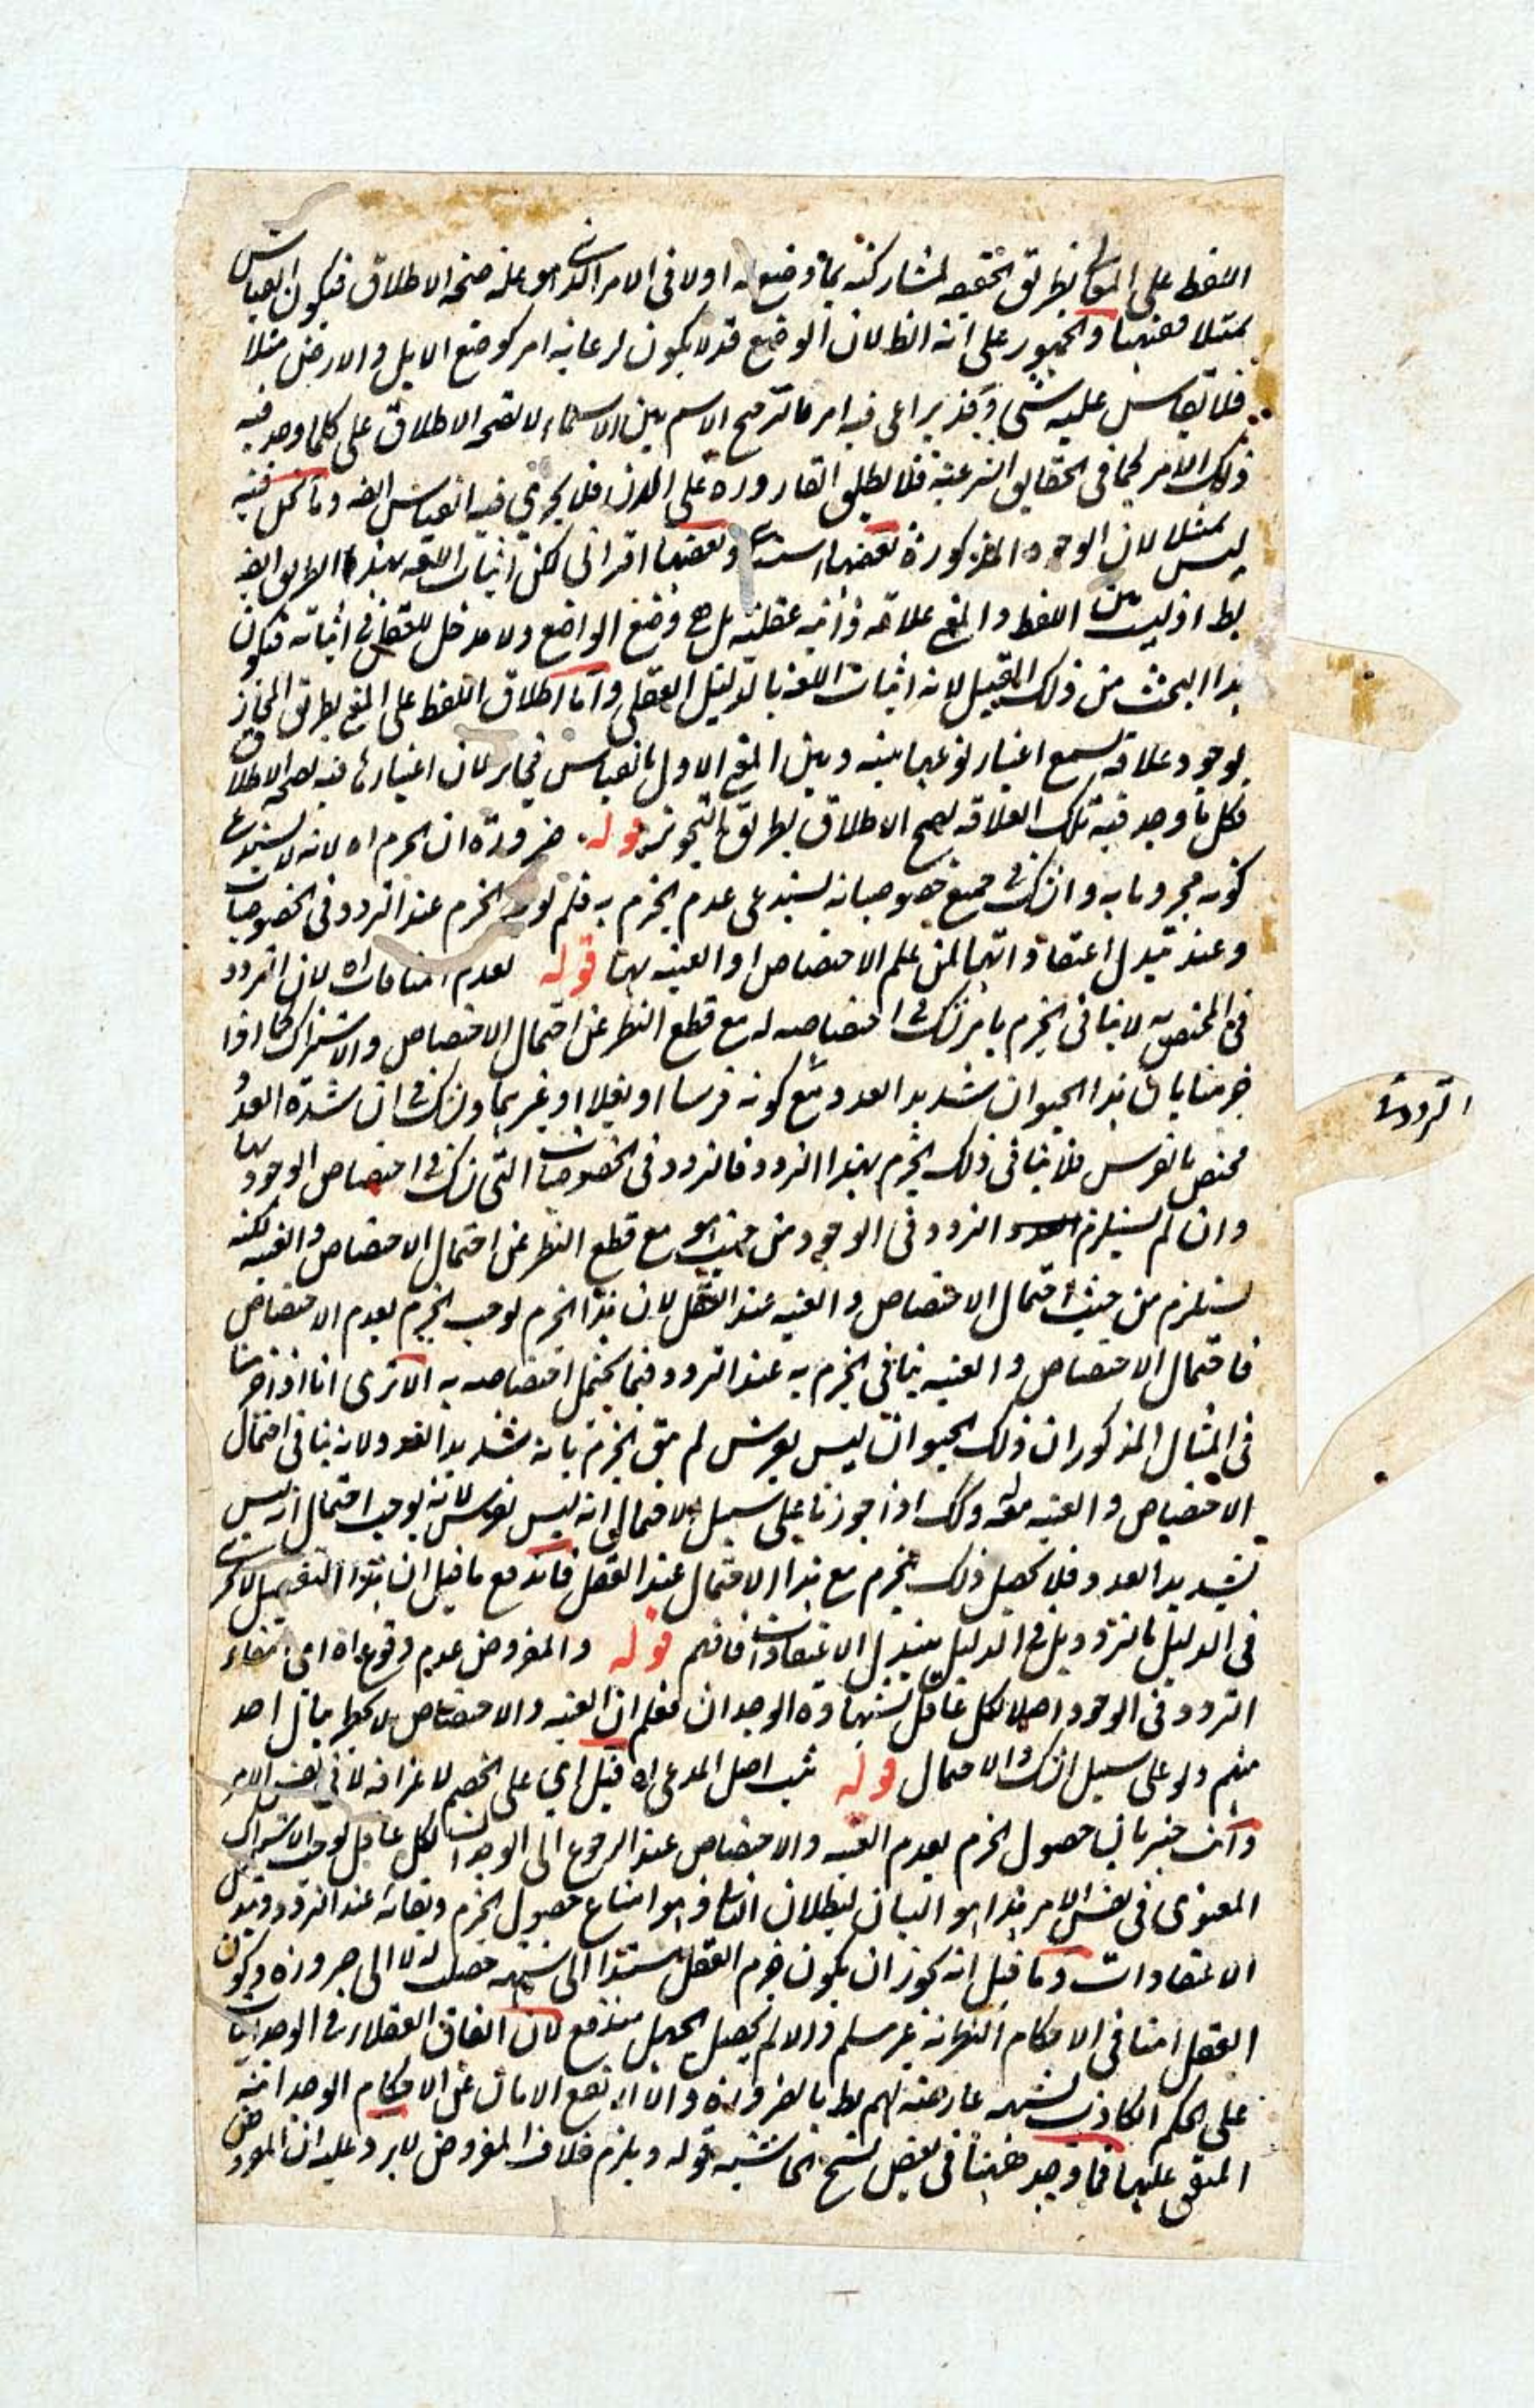 اللفظ على المعنى الثاني بطريق الحقيقه لمشاركته بما وضع له اولا فى الامر الذى هو علة صحة الاطلاق فيكون القياس
مثلا فمنها والجمهور على انه الخطا لان الوضع قد لا يكون لرعاية امر كوضع الابل والارض مثلا
فلا يقاس عليه شئ وقد يراعى فيه امر ما ترجيح الاسم بين الاسماء لا لصحة الاطلاق على كلما وجد فيه
ذلك الامر كما فى الحقايق الشرعية فلا يطلق القارورة على الدن فلا يجرى فيه القياس ايضا وما نحن فيه
ليس مثلا لان الوجوه المذكورة بعضها استثنائى وبعضها اقترانى لكن اثبات اللغة بهذا الطريق ايضا
بط اذ ليس بين اللفظ والمعنى علاقه ذاتيه عقليه بل هى وضع الواضع ولا مدخل للعقل فى اثباته فيكون
هذا البحث من ذلك القبيل لانه اثبات اللغة بالدليل العقلى واما اطلاق اللفظ على المعنى بطريق المجاز
لوجود علاقة سمع اعتبار نوعها بينه وبين المعنى الاول بالقياس فجايز لان اعتبارها فيه لصحة الاطلاق
فكل ما وجد فيه تلك العلاقه يصح الاطلاق بطريق التجوز قوله ضرورة ان الجزم اه لانه لا يستدعى
كونه مجزوما به وان الشك فى جميع خصوصياته يستدعى عدم الجزم به فلم يوجد الجزم عند التردد فى الخصوصيات
وعند تبدل اعتقاداتها لمن علم الاختصاص او العينيه بها قوله لعدم المنافات اه لان التردد
فى المختص به لا ينافى الجزم بامر نشك اختصاصه له مع قطع النظر عن احتمال الاختصاص والاشتراك كما اذا
جزمنا بان هذا الحيوان شديد العدو مع كونه فرسا او بغلا او غيرهما ونشك فى ان شدة العدو
مختص بالفرس فلا ينافى ذلك الجزم بهذا التردد فالتردد فى الخصوصيات التى نشك فى اختصاص الوجود بها
وان لم يستلزم التردد فى الوجود من حيث هو مع قطع النظر عن احتمال الاختصاص والعينيه لكنه
يستلزم من حيث احتمال الاختصاص والعينيه عند العقل لان هذا الجزم يوجب الجزم بعدم الاختصاص
فاحتمال الاختصاص والعينيه ينافى الجزم به عند التردد فيما يحتمل اختصاصه به الا ترى انا اذا جزمنا
فى المثال المذكور ان ذلك الحيوان ليس بفرس لم يبق الجزم بانه شديد العدو لانه ينافى احتمال
الاختصاص والعينيه معه وكذلك اذا جوزنا على سبيل الاحتمال انه ليس بفرس لانه يوجب احتمال انه ليس
بشديد العدو فلا يحصل ذلك الجزم مع هذا الاحتمال عند العقل فاندفع ما قيل ان هذا التفصيل لا يجرى
فى الدليل بالتردد بل فى الدليل بتبدل الاعتقادات فافهم قوله والمفروض عدم وقوع اه اى انتفاء
التردد فى الوجود اصلا لكل عاقل بشهادة الوجدان فعلم ان العينيه والاختصاص لا يخطر ببال احد
منهم ولو على سبيل الشك والاحتمال قوله ثبت اصل المدعى اه قيل اى على الخصم لاعترافه لا فى نفس الامر
وانت خبير بان حصول الجزم بعدم العينيه والاختصاص عند الرجوع الى الوجدان لكل عاقل يوجب الاشتراك
المعنوى فى نفس الامر هذا هو البيان لبطلان التالى وهو امتناع حصول الجزم وبقائه عند التردد وتبدل
الاعتقادات وما قيل انه يجوز ان يكون جزم العقل مستندا الى شبهه حصلت له لا الى ضرورة وكون
العقل امنا فى الاحكام الوجدانيه غير مسلم والا لم يحصل الجهل مندفع لان اتفاق العقلاء فى الوجدانيات
على الحكم الكاذب لشبهه عارضة لهم بط بالضروره والا لارتفع الامان عن الاحكام الوجدانيه
المتفق عليها فما وجد ههنا فى بعض نسخ الحاشيه قوله ويلزم خلاف المفروض لا يرد عليه ان المفروض
التردد